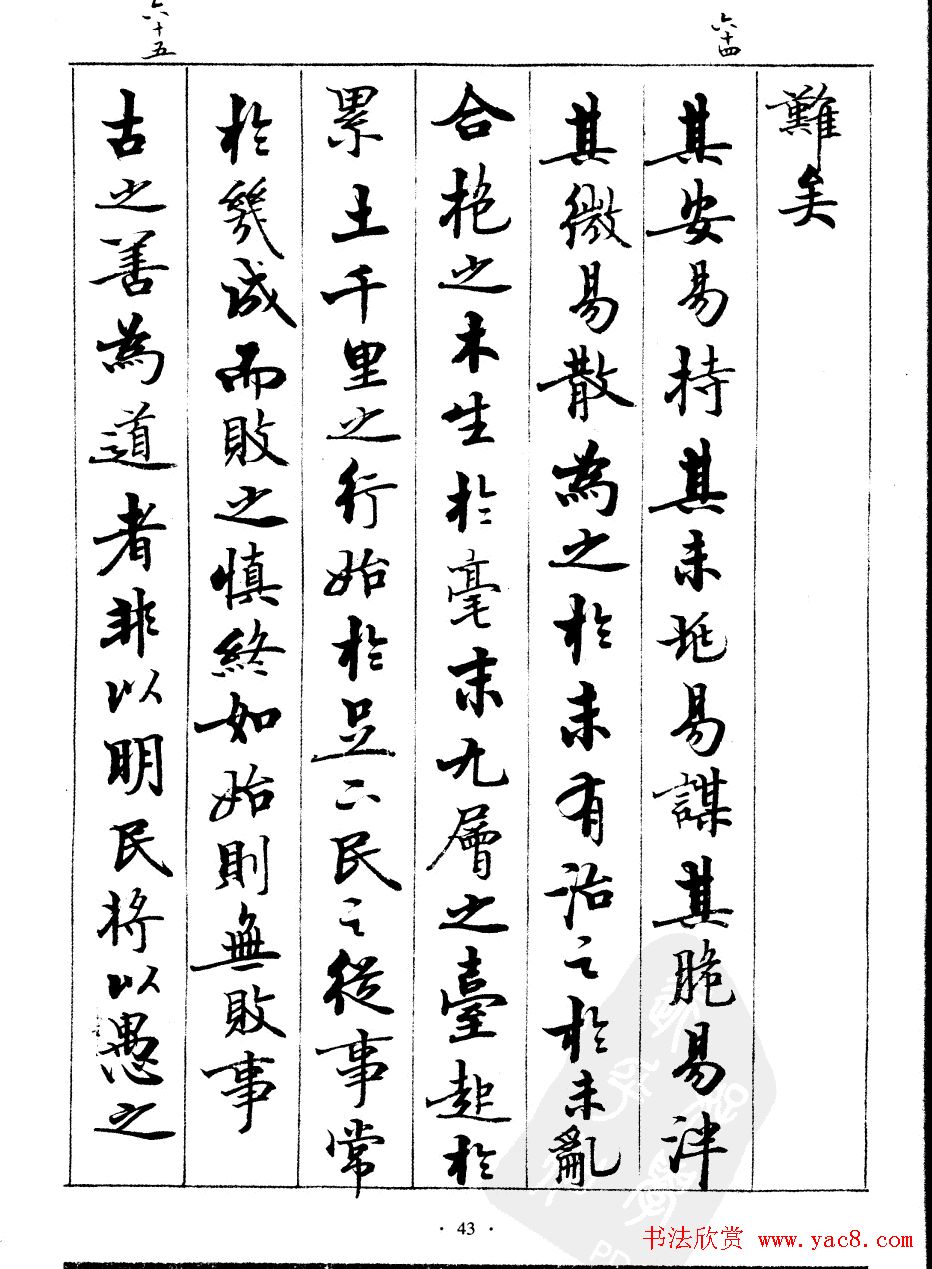 六十四
六十五
難矣
其安易持其未兆易謀其脆易泮
其微易散為之於未有治之於未亂
合抱之木生於毫末九層之臺起於
累土千里之行始於足下民之從事常
於幾成而敗之慎終如始則無敗事
古之善為道者非以明民將以愚之
· 43 ·
书法欣赏 www.yac8.com